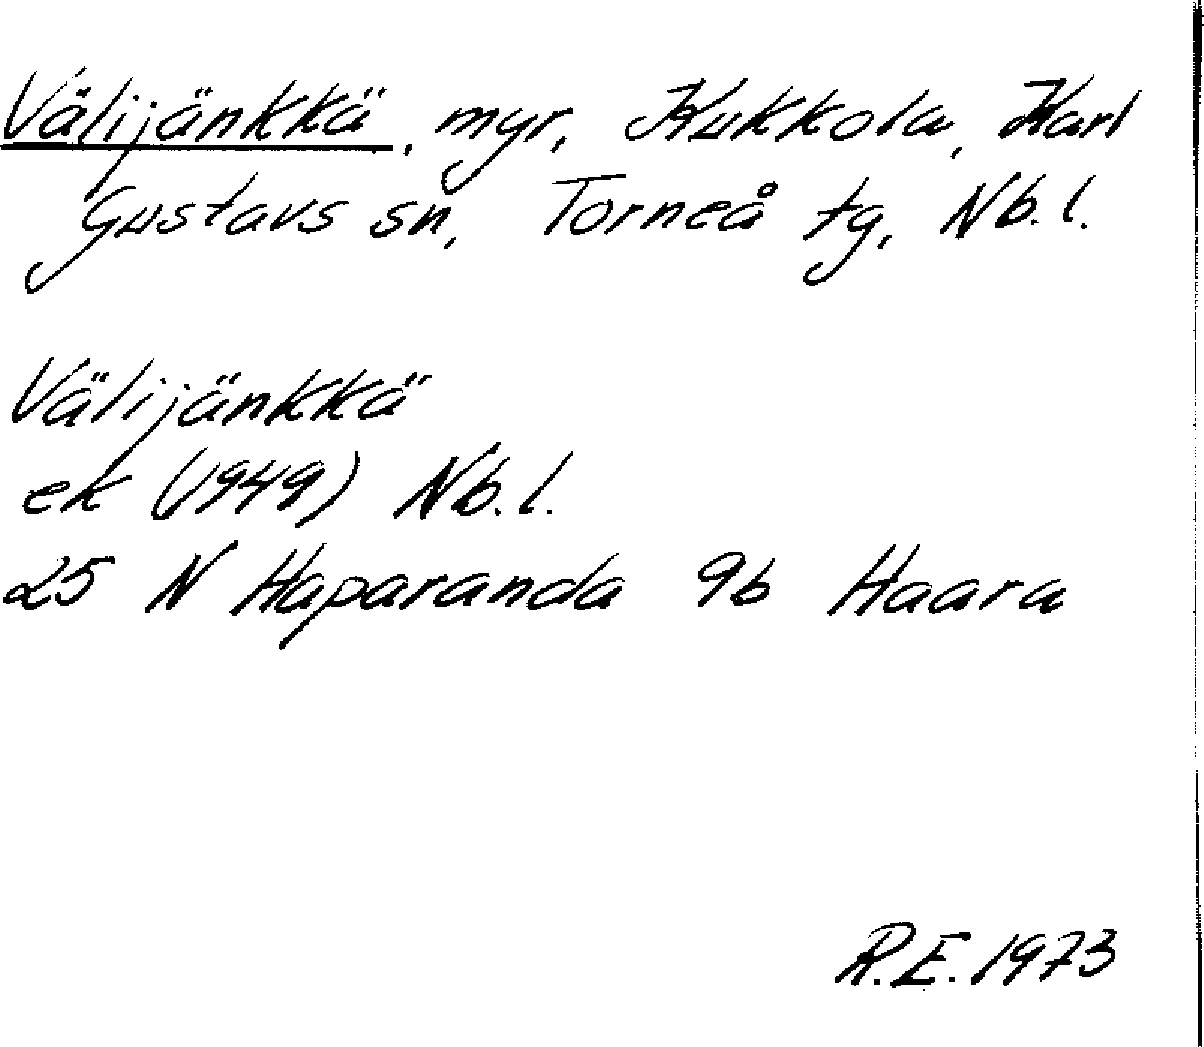 Välijänkkä, myr, Kukkola, Karl
Gustavs sn, Torneå tg, Nb.l.
Välijänkkä
ek (1949) Nb.l.
25 N Haparanda 9b Haara
R.E. 1973